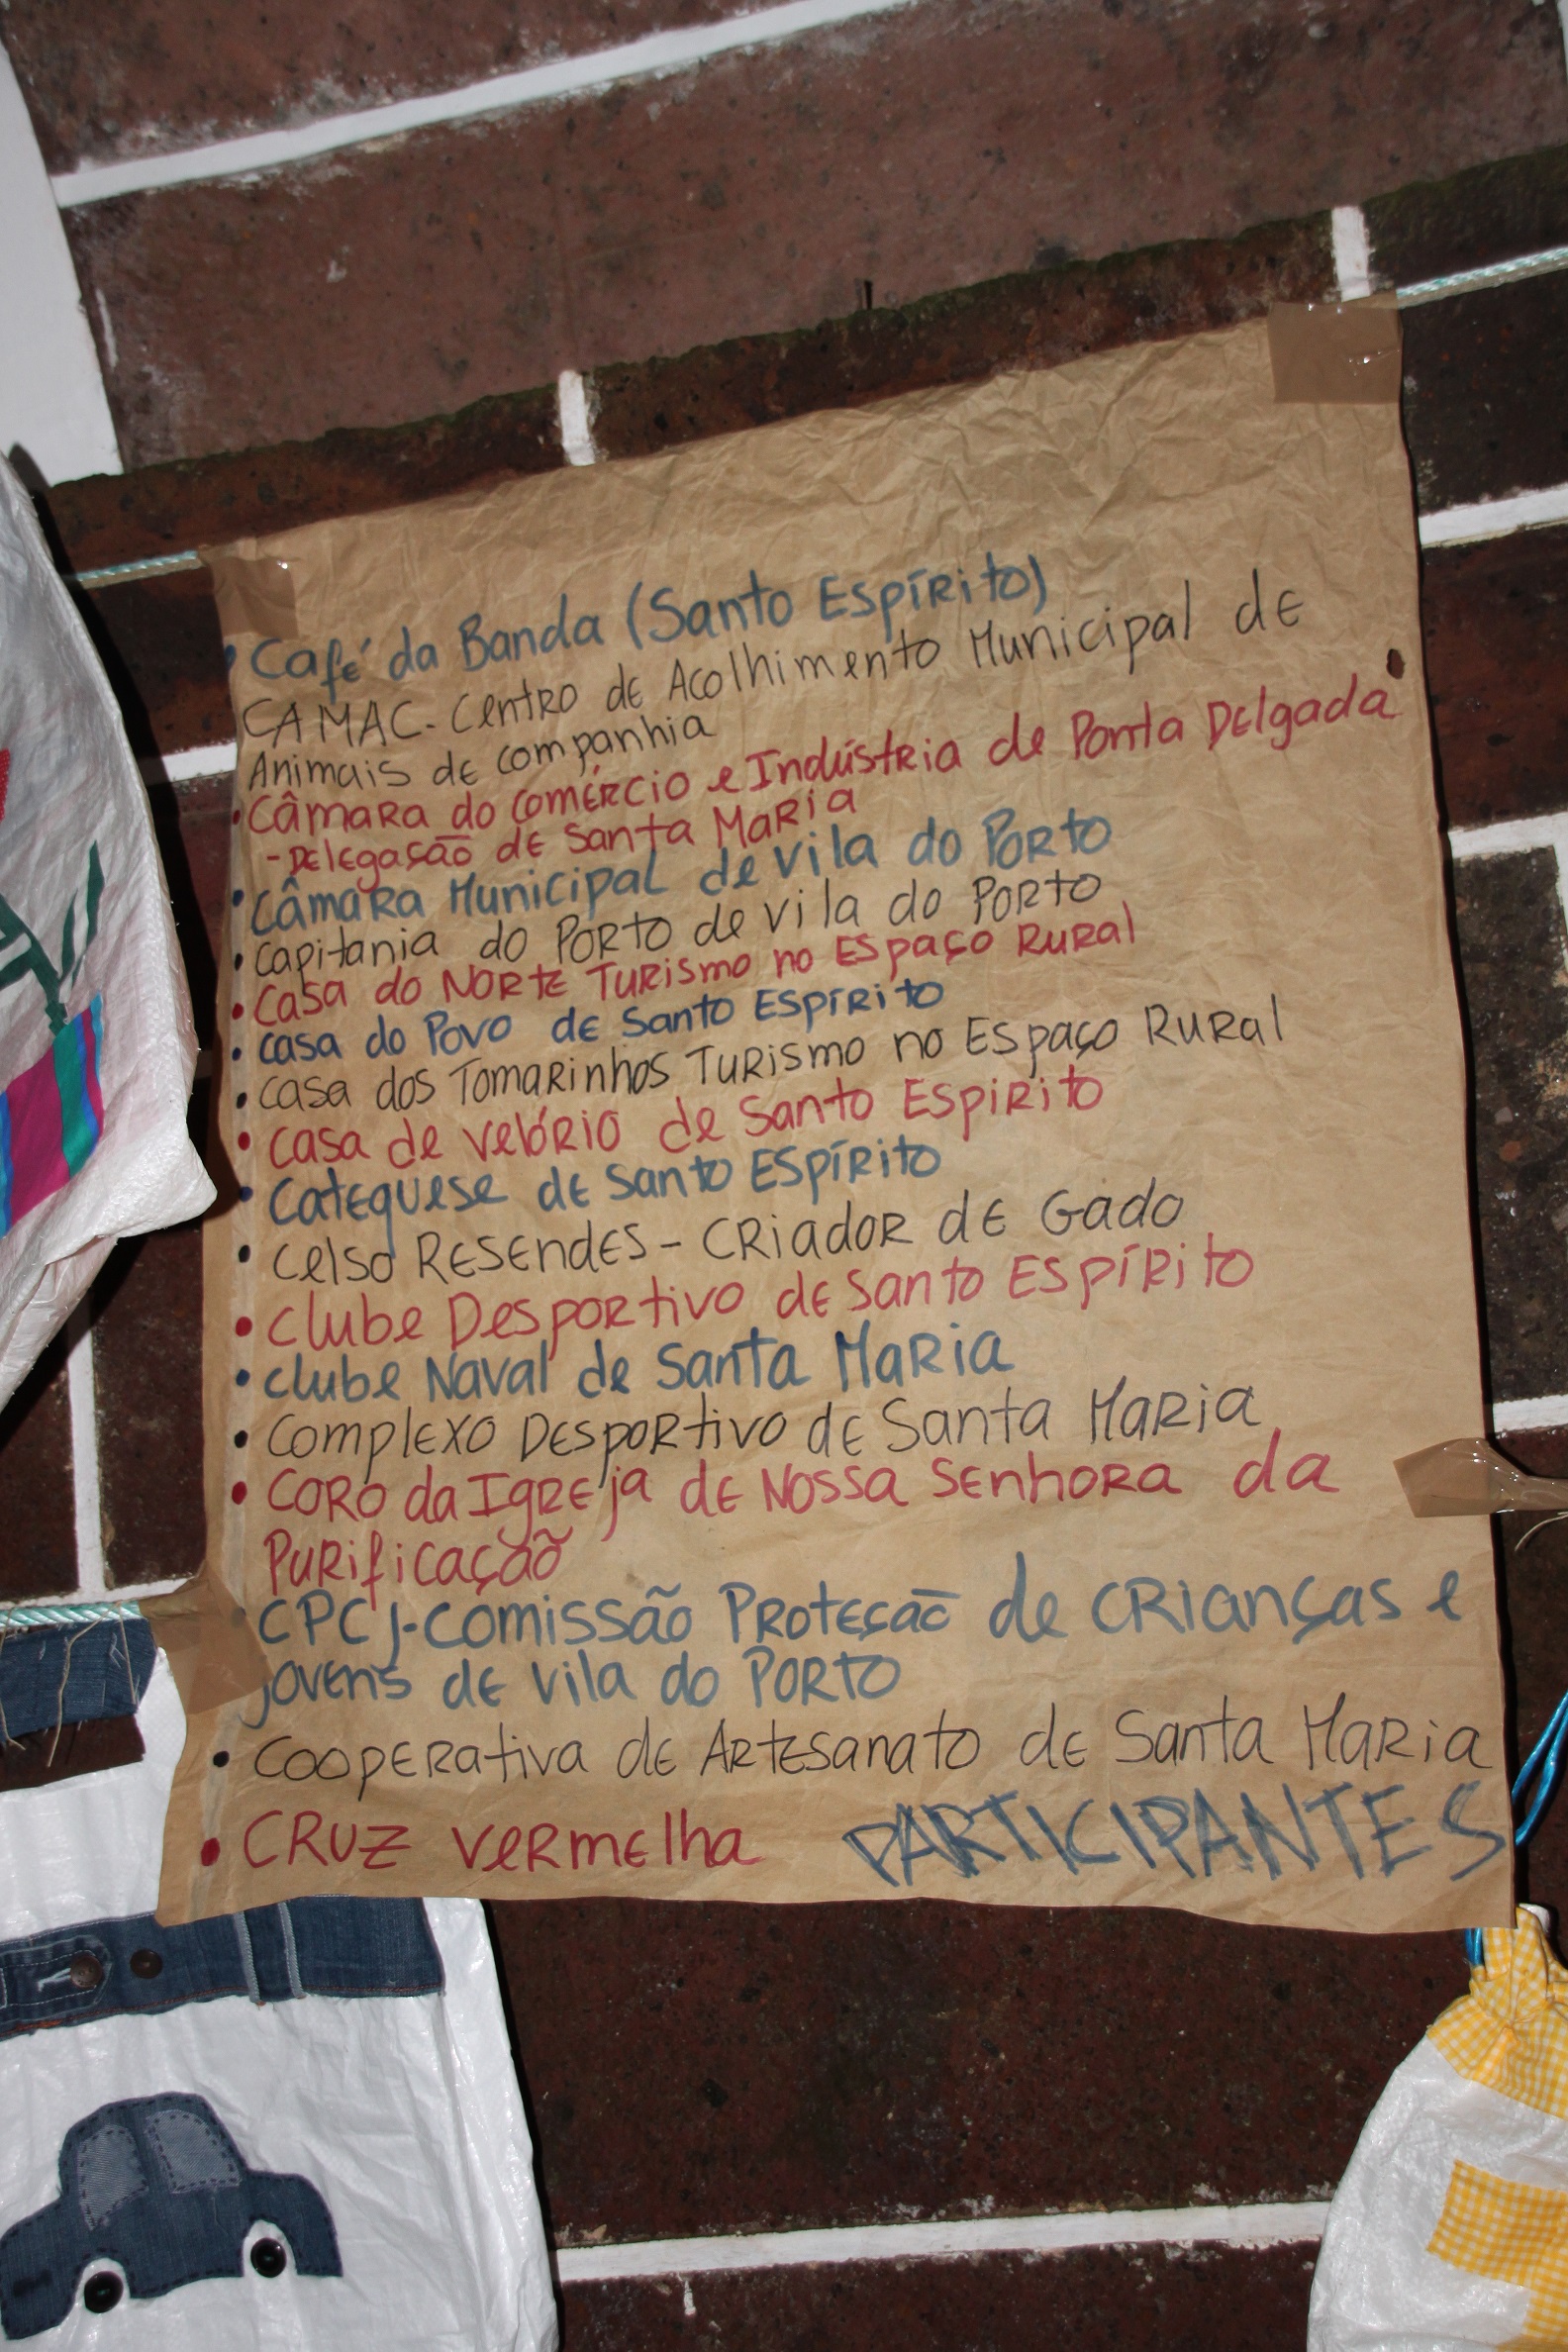 • Café da Banda (Santo Espírito)
CAMAC - Centro de Acolhimento Municipal de
Animais de companhia
• Câmara do Comércio e Indústria de Ponta Delgada
- Delegasão de Santa Maria
• Câmara Municipal de Vila do Porto
• Capitania do Porto de Vila do Porto
• Casa do Norte Turismo no Espaço Rural
• Casa do Povo de Santo Espírito
• Casa dos Tomarinhos Turismo no Espaço Rural
• Casa de Velório de Santo Espirito
• Catequese de Santo Espírito
• Celso Resendes - Criador de Gado
• Clube Desportivo de Santo Espírito
• Clube Naval de Santa Maria
• Complexo Desportivo de Santa Maria
• Coro da Igreja de Nossa Senhora da
Purificação
CPCJ - Comissão Proteção de Crianças e
Jovens de Vila do Porto
• Cooperativa de Artesanato de Santa Maria
• Cruz Vermelha PARTICIPANTES